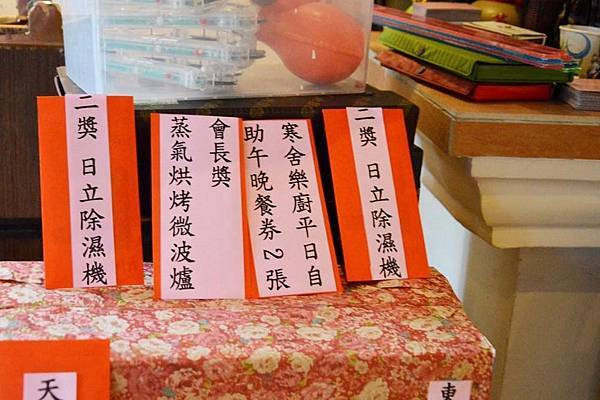 二獎 日立除濕機
會長獎
蒸氣烘烤微波爐
寒舍樂廚平日自
助午晚餐券2張
二獎 日立除濕機
天
東